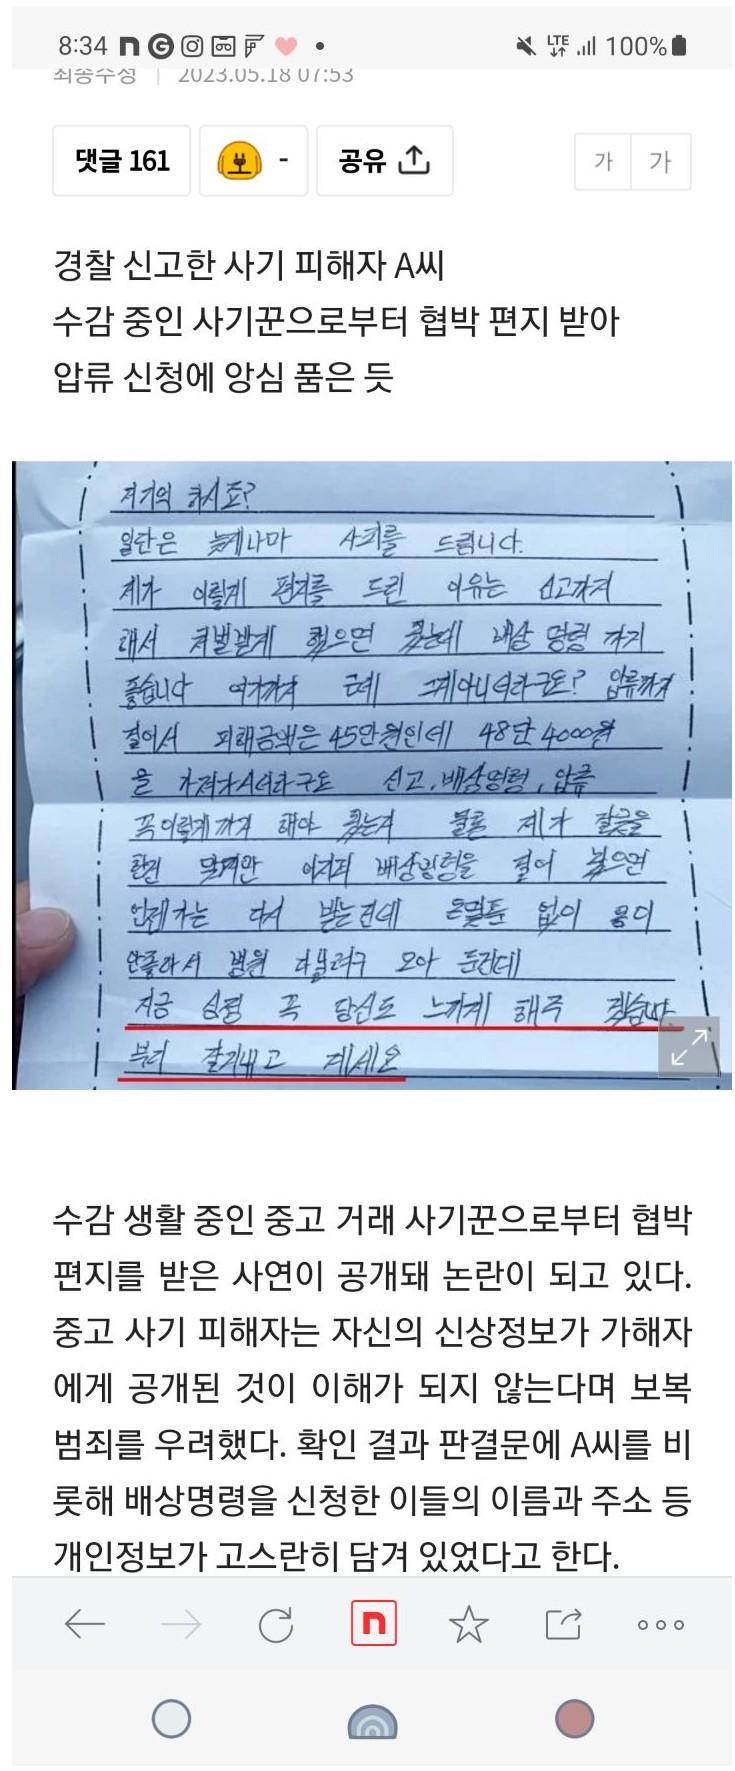 8:34
LTE
100%
최종수정 | 2023.05.18 07:53
댓글 161
-
공유
가
가
경찰 신고한 사기 피해자 A씨
수감 중인 사기꾼으로부터 협박 편지 받아
압류 신청에 앙심 품은 듯
하시죠?
일단은 늦게나마 사죄를 드립니다.
제가 이렇게 편지를 드린 이유는 신고까지
해서 처벌받게 했으면 됐는데 배상 명령 까지
좋습니다 여기까지 근데 그게아니더라구요? 압류까지
걸어서 피해금액은 45만원인데 48만 4000원
을 가져가시더라구요 신고, 배상명령, 압류
꼭이렇게까지 해야 됐는지 물론 제가 잘못을
한건 맞지만 어차피 배상명령을 걸어 놨으면
언젠가는 다시 받는건데 돈없이 몸이
안좋아서 병원 다닐려구 모아 둔건데
지금 심정 꼭 당신도 느끼게 해주 겠습니다.
부디 잘지내고 계세요
수감 생활 중인 중고 거래 사기꾼으로부터 협박
편지를 받은 사연이 공개돼 논란이 되고 있다.
중고 사기 피해자는 자신의 신상정보가 가해자
에게 공개된 것이 이해가 되지 않는다며 보복
범죄를 우려했다. 확인 결과 판결문에 A씨를 비
롯해 배상명령을 신청한 이들의 이름과 주소 등
개인정보가 고스란히 담겨 있었다고 한다.